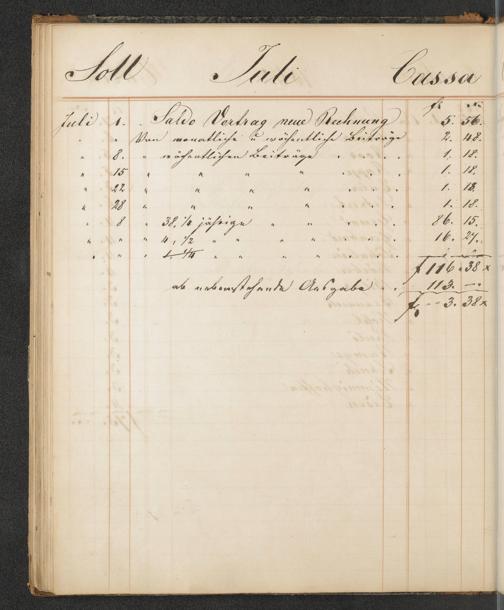 Soll Juli Cassa
f. x.
Juli 1. „ Saldo Vortrag neue Rechnung 5. 56.
„ „ Von monatliche u. wöchentliche Beiträge 2. 48.
„ 8. „ wöchentlichen Beiträge „ . . 1. 18.
„ 15 „ „ „ „ „ . . 1. 18.
„ 22 „ „ „ „ „ . . 1. 18.
„ 28 „ „ „ „ „ . . 1. 18.
„ 8 „ 38, 1/4 jährige „ „ . . 86. 15.
„ „ „ 4, 1/2 „ „ „ . . 16. 27.
„ „ „ „ „ „ „ . .
f 116. 38 x
ab nebenstehende Ausgabe . . 113. —
f. -- 3. 38 x